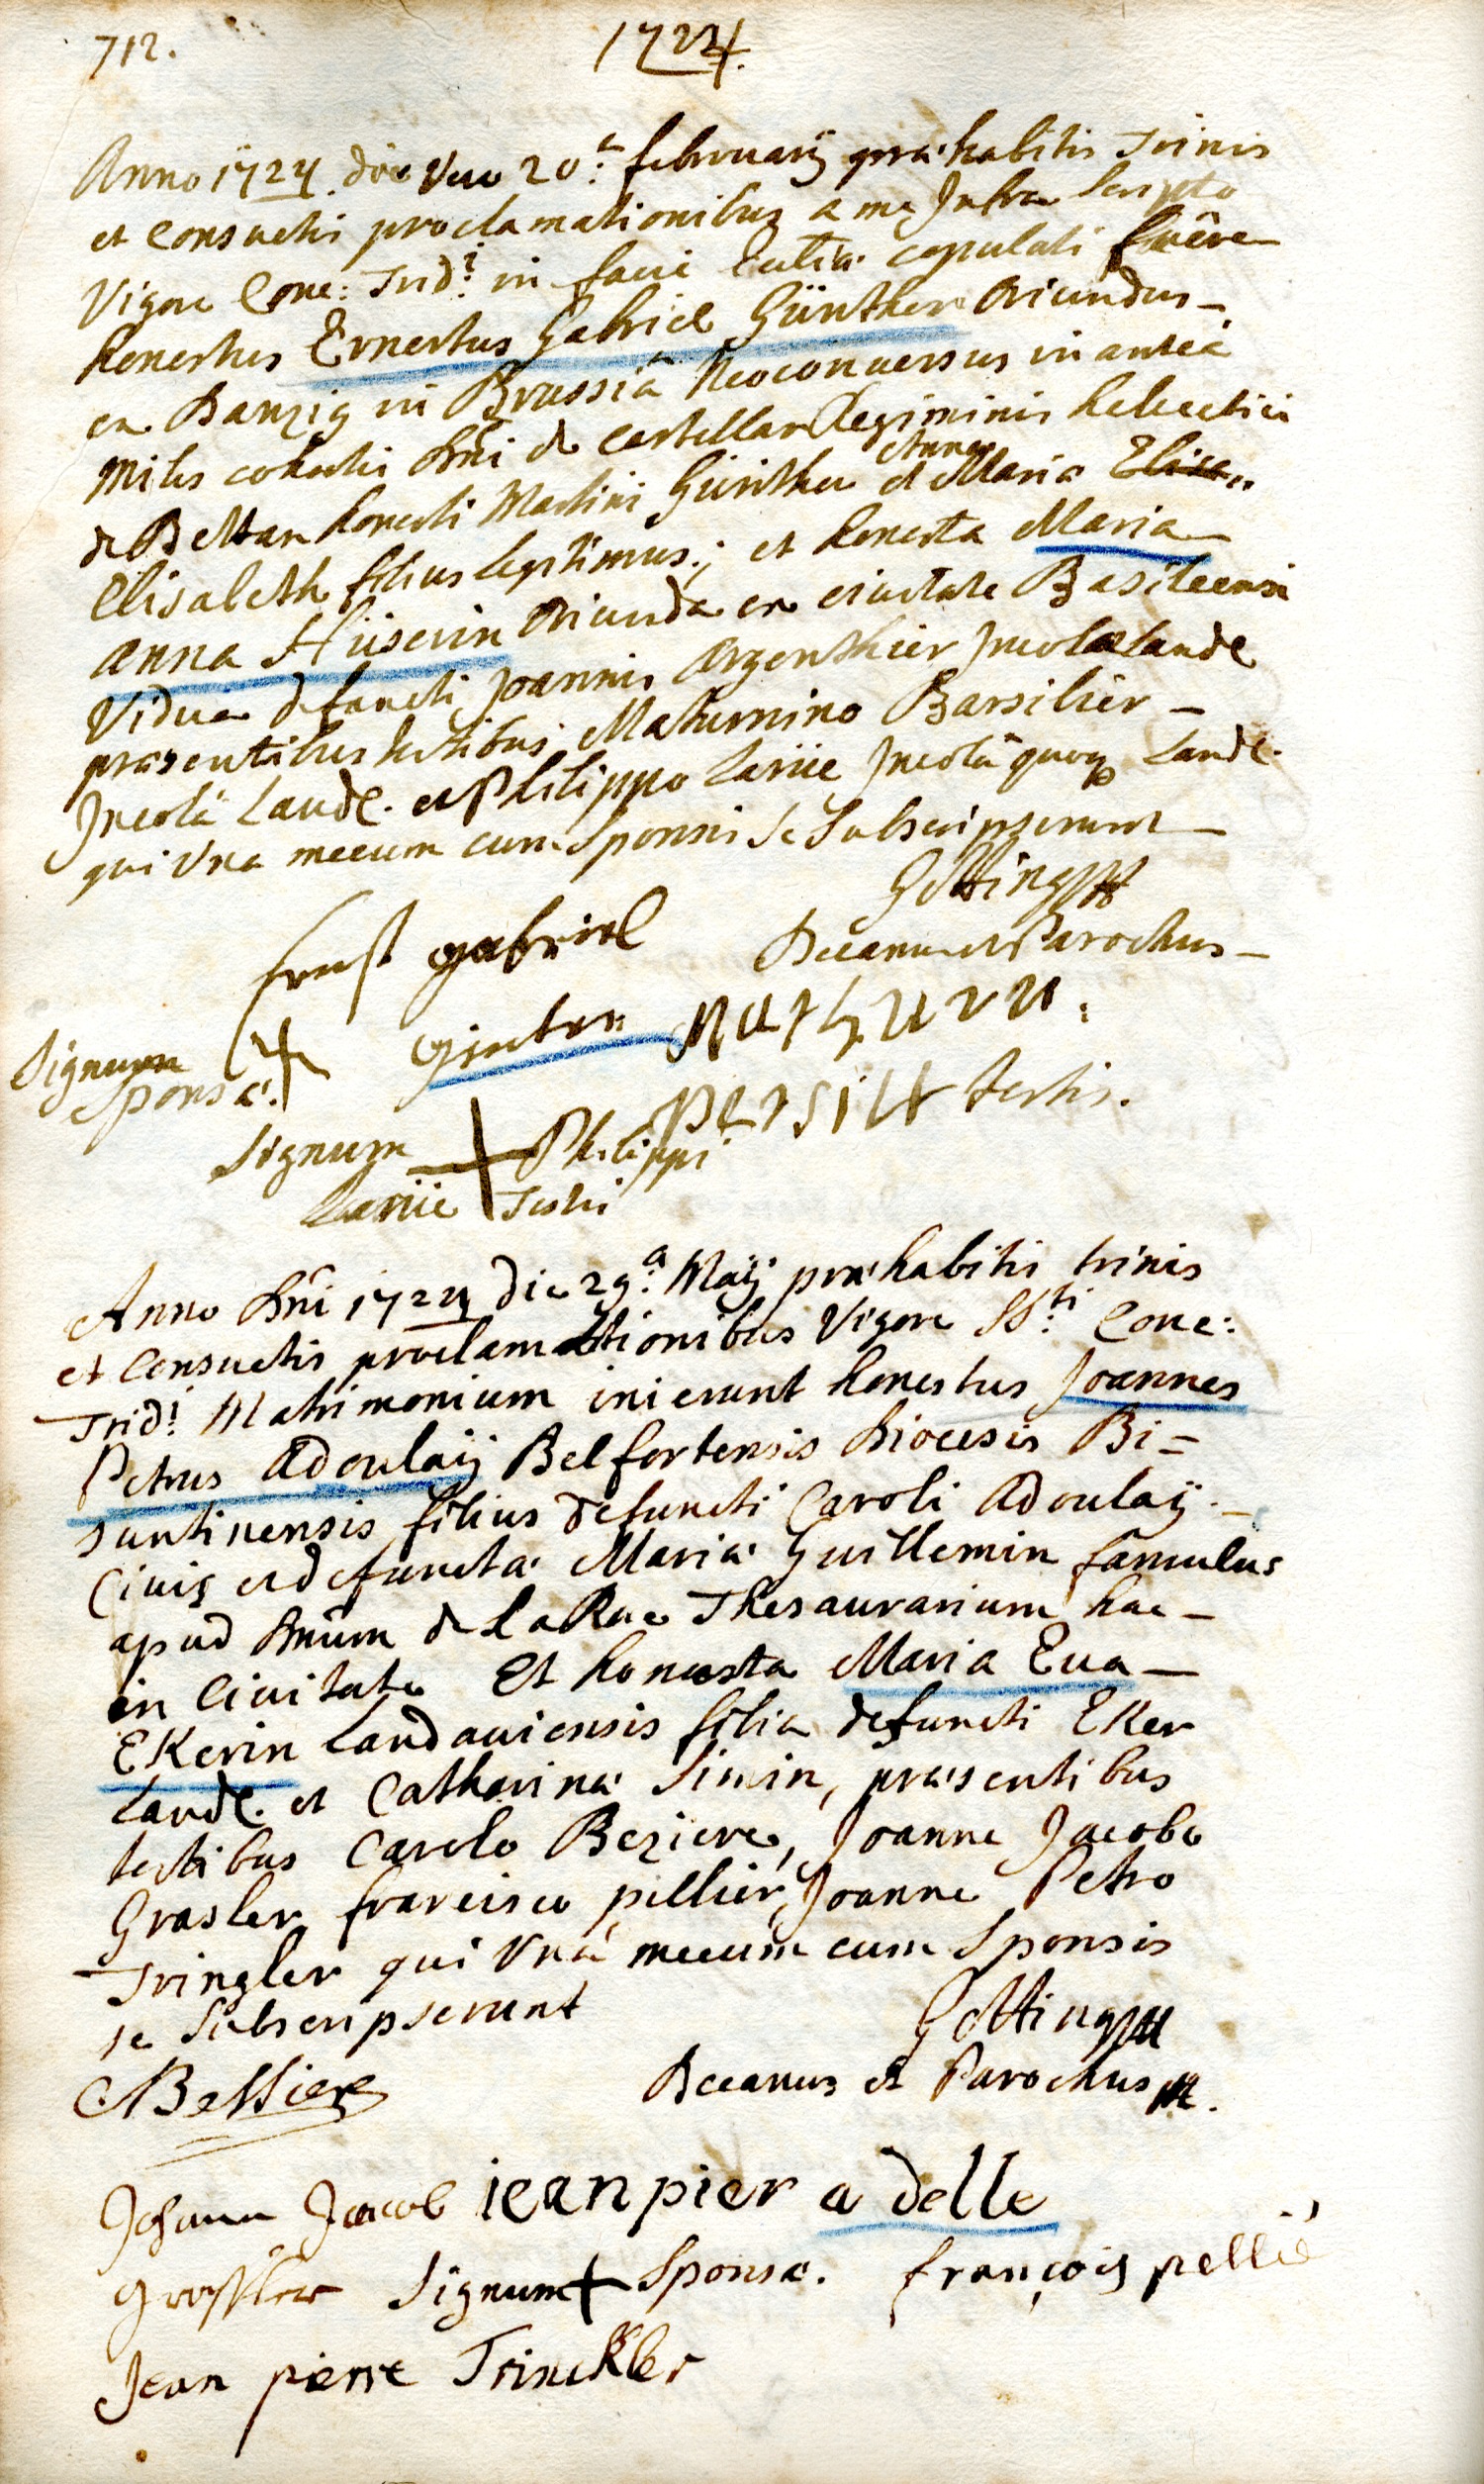 712.
1724.
Anno 1724 die vero 20.a februarij præhabitis Trinis
et Consuetis proclamationibus a me Infra scripto
Vigore Conc: Trid: in facie Eccliæ copulati fuêre
honestus Ernestus Gabriel Günther oriundus
ex Danzig in Prussiâ Neoconuersus in anteà
Miles cohortis Dni de Castellar Regiminis heluetici
de honesti Martini Günther et Anna Maria
Elisabeth filius legitimus; et honesta Maria
Anna Hüserin oriunda ex ciuitate Basileensi
Vidua defuncti Joannis Argenthier Incolæ Landæ
præsentibus testibus Maturnino Barsilier
Incolâ Landæ. et Philippo Lariie Incolâ quoq Landæ.
qui Vna mecum cum Sponsis se Subscripserunt
Götting
Decanus et Parochus
Ernst gabriel
ginter
Signum Sponsæ.
testis.
Signum Philippi
Lariie Testis
Anno Dni 1724 die 29.a Maij præhabitis trinis
et Consuetis proclamationibus Vigore SS.ti Conc:
Trid: Matrimonium inierunt honestus Joannes
Petrus Adoulaij Belfortensis Diocesis Bi=
suntinensis filius defuncti Caroli Adoulaij
Ciuis et defunctæ Mariæ Guillemin famulus
apud Dnum de LaRue Thesaurarium hac
in Ciuitate Et honesta Maria Eua
EKerin Landauiensis filia defuncti EKer
Landæ. et Catharinæ Simin, præsentibus
testibus Carolo Beziere, Joanne Jacobo
Grasler francisco pellier, Joanne Petro
Tringler qui Vnà mecum cum Sponsis
se Subscripserunt
Götting
Decanus et Parochus
CBessiere
Johann Jacob jean pier a delle
Grassler Signum Sponsæ. françois pellié
Jean pierre Trinckler